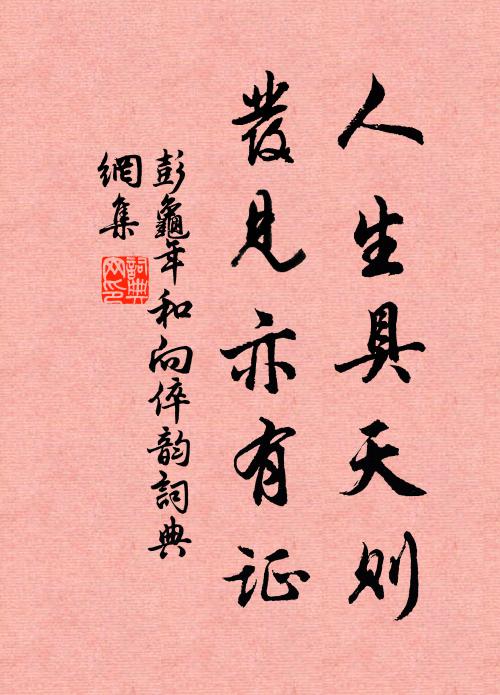 人生具天则
發见亦有证
彭龜年和向倅韵詞典
網集
詞典網印